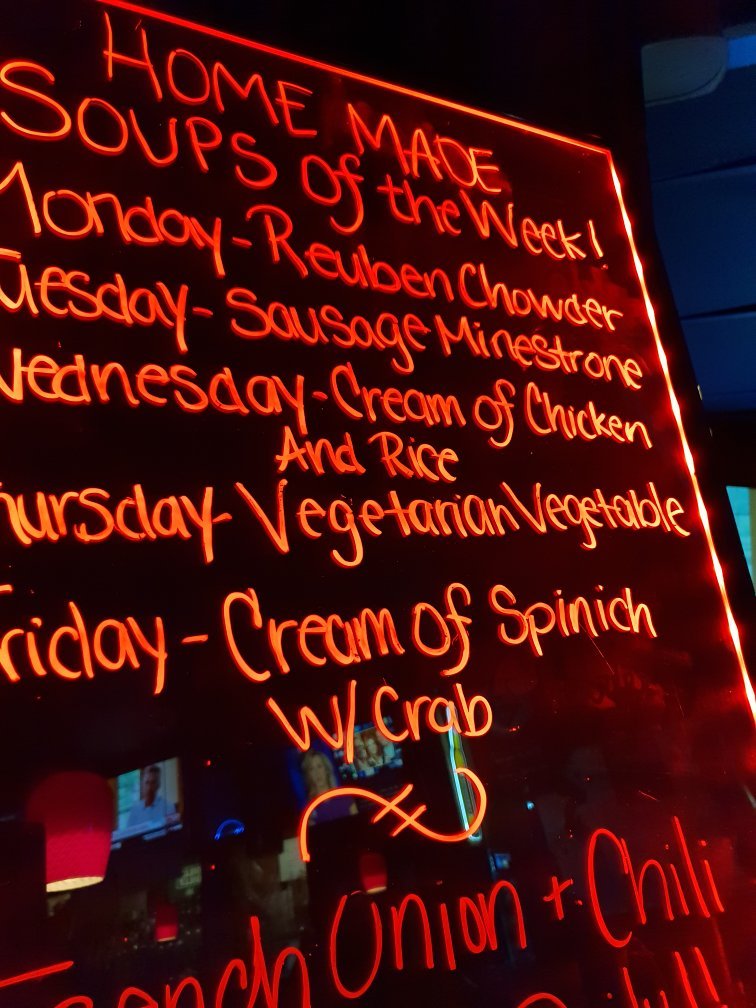 HOME MADE
SOUPS of the Week!
Monday - Reuben Chowder
Tuesday - Sausage Minestrone
Wednesday - Cream of Chicken
And Rice
Thursday - Vegetarian Vegetable
Friday - Cream of Spinich
W/ Crab
French Onion + Chili
Daily!!